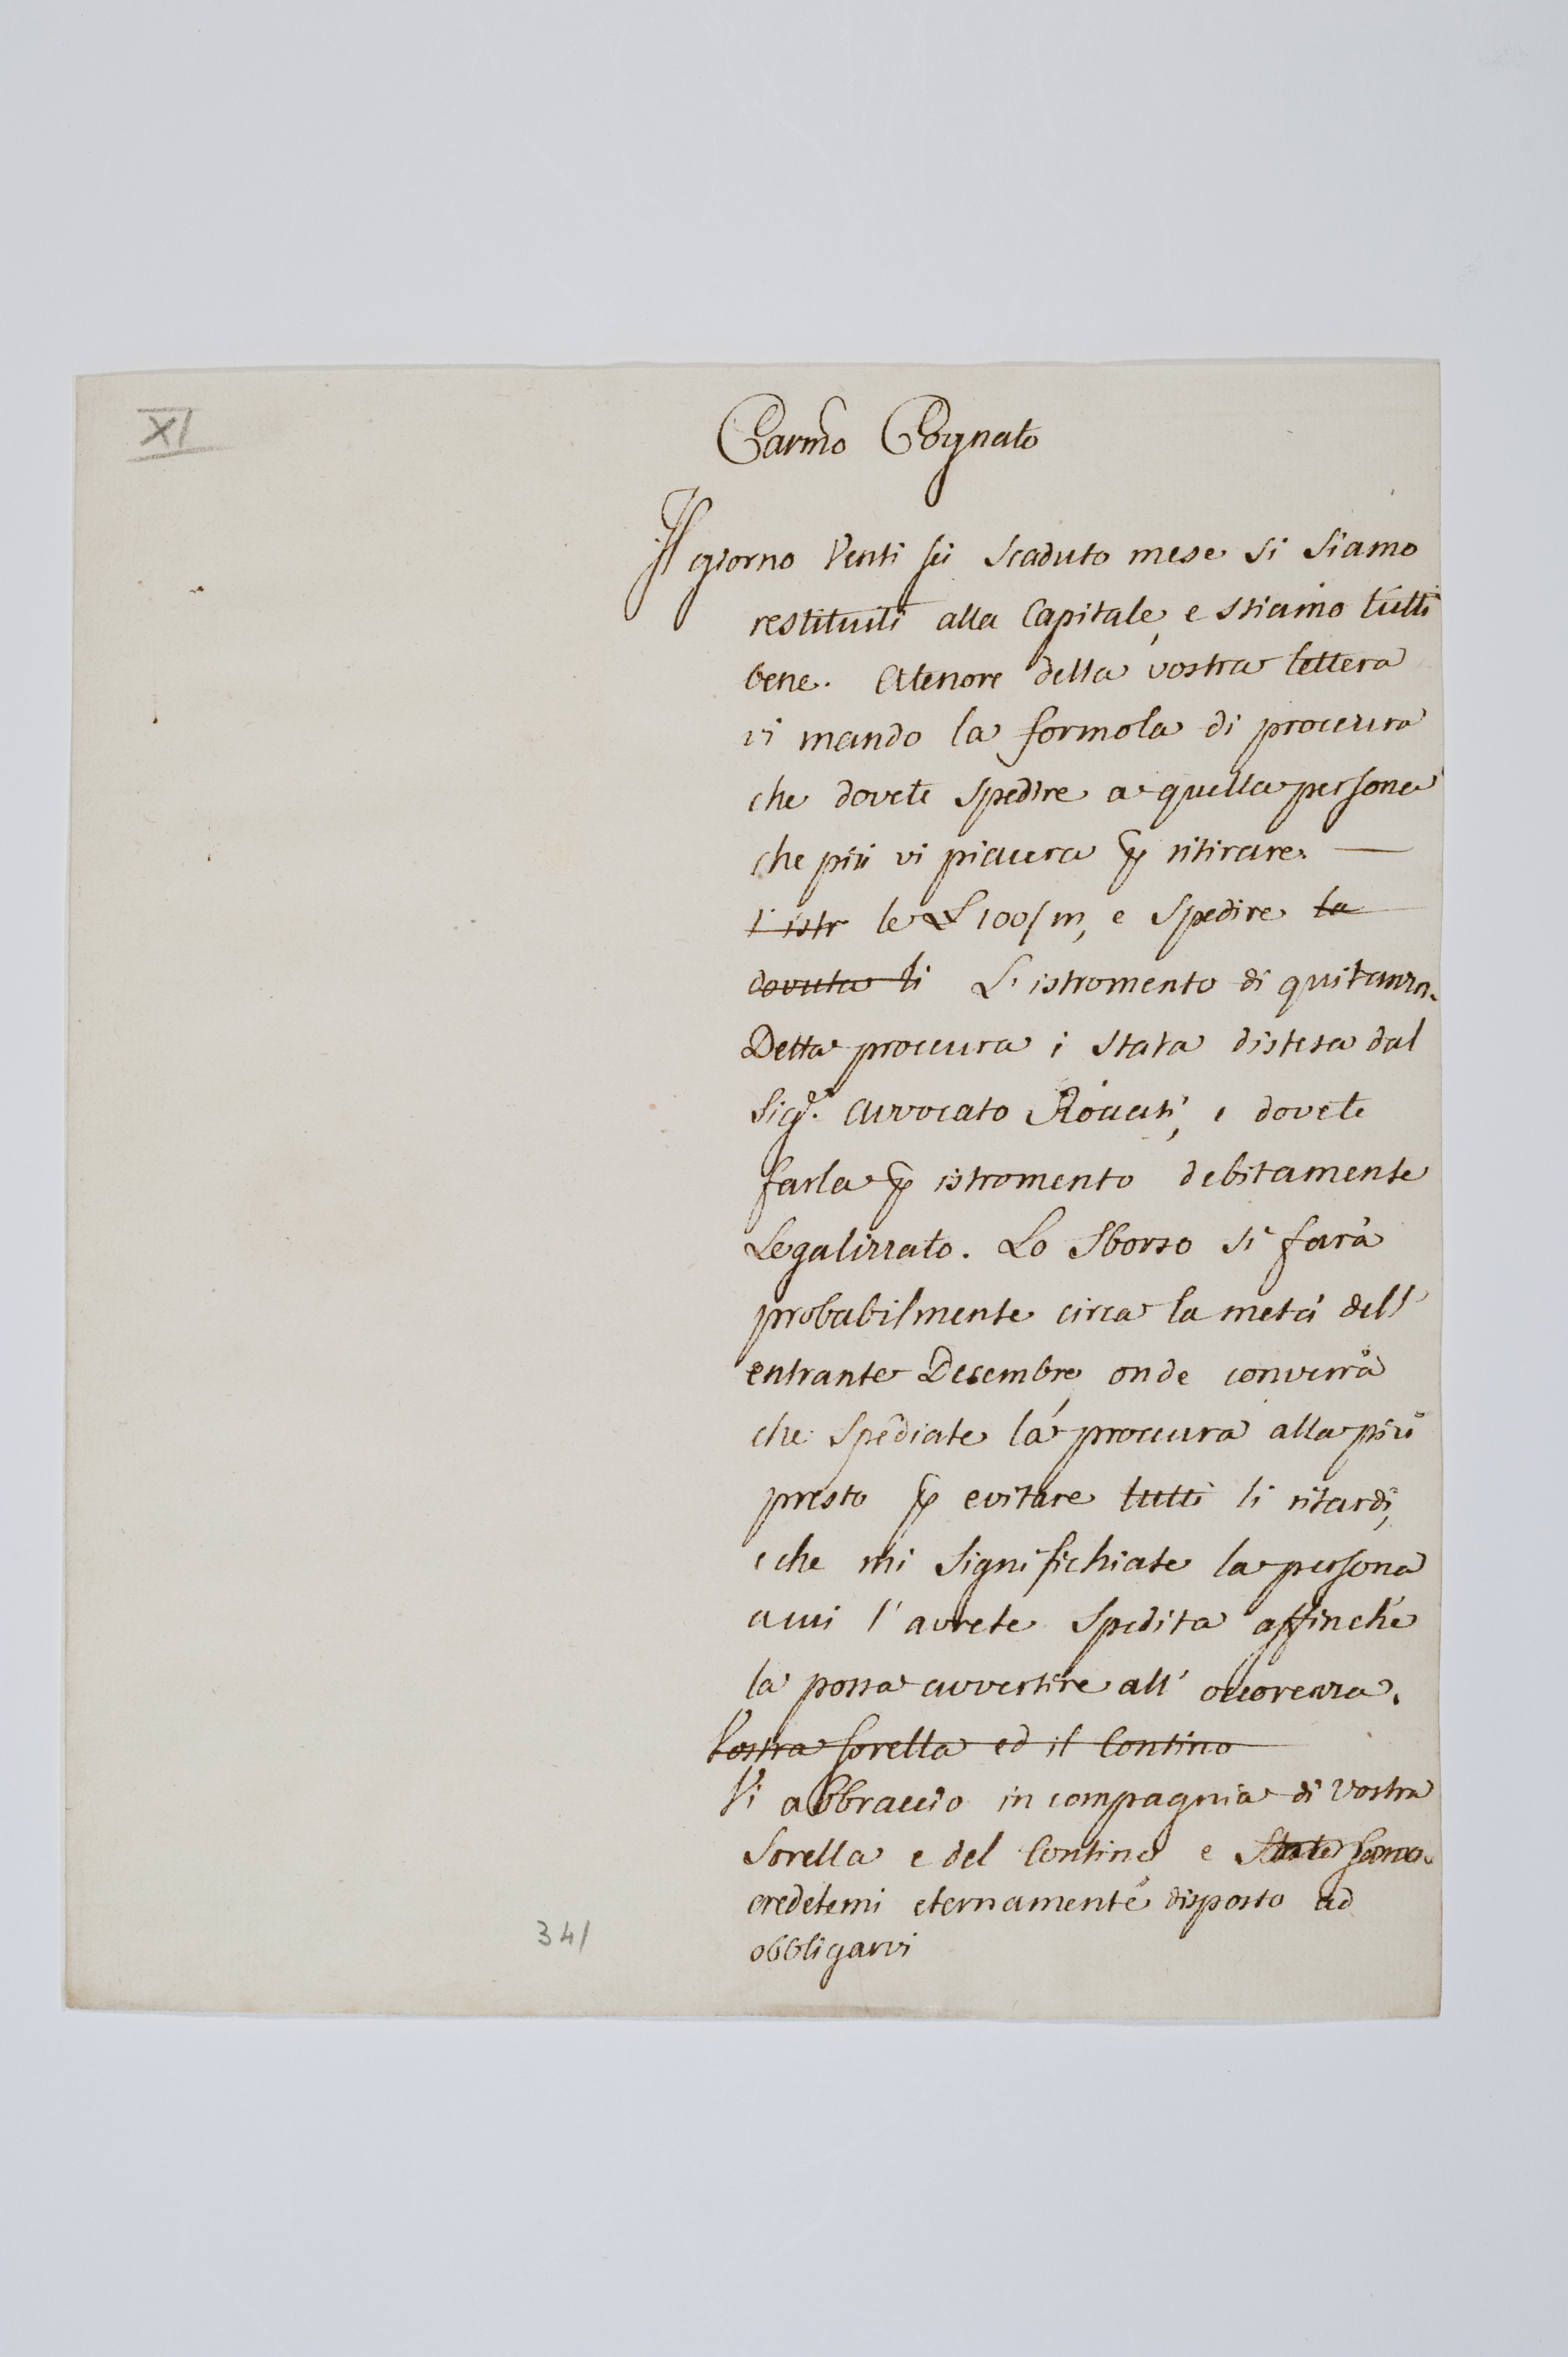 XI
Carmo Cognato
Il giorno Venti sei scaduto mese si siamo
restituiti alla Capitale, e stiamo tutti
bene. Atenore della vostra lettera
vi mando la formola di procura
che dovete spedire a quella persona
che più vi piacera p ritirare. —
l'istr le L 100/m, e spedire la
dovuta li L'istromento di quitanza.
Detta procura è stata distesa dal
Sigr. avvocato Rovati, e dovete
farla p istromento debitamente
Legalizzato. Lo Sborso si farà
probabilmente circa la metà dell'
entrante Decembre, onde converrà
che spediate la procura alla più
presto p evitare tutti li ritardi,
e che mi significhiate la persona
a cui l'avrete spedita affinchè
la possa avvertire all' occorenza.
Vostra sorella ed il Contino
Vi abbraccio in compagnia di vostra
Sorella e del Contino e State sano.
credetemi eternamente disposto ad
obbligarvi
341